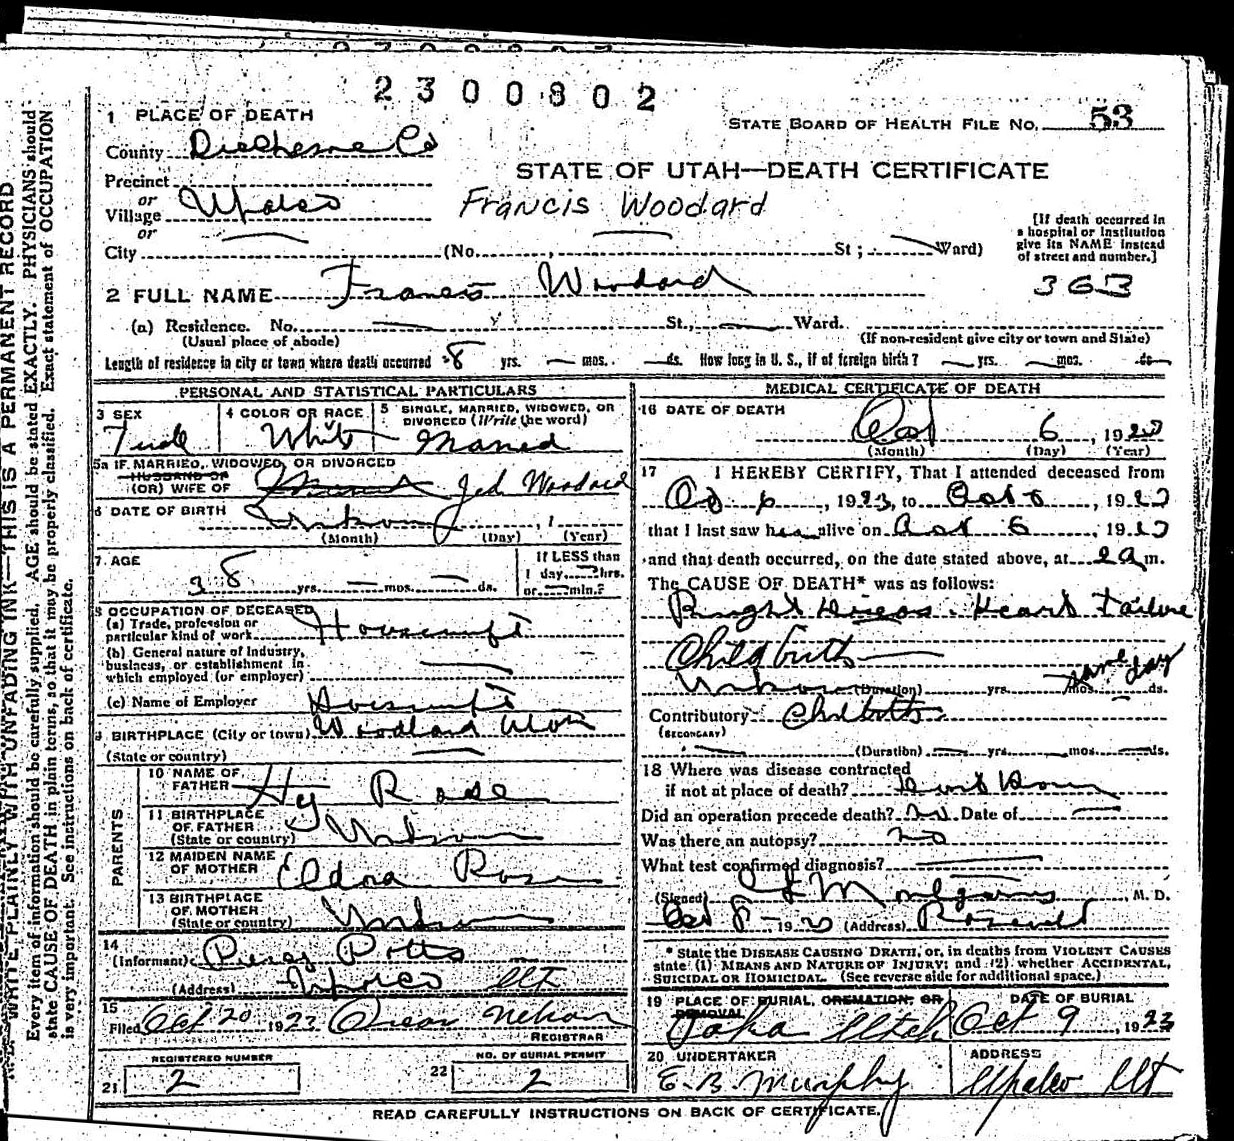 2300802
1 PLACE OF DEATH
STATE BOARD OF HEALTH FILE NO. 53
County Duchesne Co
STATE OF UTAH—DEATH CERTIFICATE
Precinct
or
Village Upalco
Francis Woodard
or
City (No. , St ; Ward)
[If death occurred in
a hospital or institution
give its NAME instead
of street and number.]
2 FULL NAME Francis Woodard
363
(a) Residence. No. St., Ward.
(Usual place of abode)
(If non-resident give city or town and State)
Length of residence in city or town where death occurred 8 yrs. — mos. — ds. How long in U. S., if of foreign birth? — yrs. — mos. — ds
PERSONAL AND STATISTICAL PARTICULARS
3 SEX
4 COLOR OR RACE White
5 SINGLE, MARRIED, WIDOWED, OR
DIVORCED (Write the word)
Married
5a IF MARRIED, WIDOWED, OR DIVORCED
HUSBAND OF
(OR) WIFE OF Jed Woodard
6 DATE OF BIRTH Unknown , 1
(Month) (Day) (Year)
7 AGE
38 yrs. — mos. — ds.
If LESS than
1 day, hrs.
or min.?
8 OCCUPATION OF DECEASED
(a) Trade, profession or
particular kind of work Housewife
(b) General nature of Industry,
business, or establishment in
which employed (or employer)
(c) Name of Employer Housewife
9 BIRTHPLACE (City or town) Woodland Utah
(State or country)
PARENTS
10 NAME OF
FATHER Hy Rose
11 BIRTHPLACE
OF FATHER
(State or country) Unknown
12 MAIDEN NAME
OF MOTHER Eldora Rose
13 BIRTHPLACE
OF MOTHER
(State or country) Unknown
14
(Informant) Percy Potts
(Address) Upalco Ut
15
Filed Oct 20 1923 Oscar Nelson
REGISTRAR
REGISTERED NUMBER
21 2
NO. OF BURIAL PERMIT
22 2
MEDICAL CERTIFICATE OF DEATH
16 DATE OF DEATH
Oct 6, 1923
(Month) (Day) (Year)
17 I HEREBY CERTIFY, That I attended deceased from
Oct 6, 1923, to Oct 6, 1923
that I last saw her alive on Oct 6, 1923
and that death occurred, on the date stated above, at 2 a m.
The CAUSE OF DEATH* was as follows:
Bright Diseas. Heart Failure
Childbirth
Unknown (Duration) yrs. mos. ds. same day
Contributory Childbirth
(SECONDARY)
(Duration) — yrs. — mos. — ds.
18 Where was disease contracted
if not at place of death? Dont Know
Did an operation precede death? No Date of
Was there an autopsy? no
What test confirmed diagnosis?
(Signed) , M. D.
Oct 8 1923 (Address) Roosevelt
* State the DISEASE CAUSING DEATH, or, in deaths from VIOLENT CAUSES
state (1) MEANS AND NATURE OF INJURY; and (2) whether ACCIDENTAL,
SUICIDAL OR HOMICIDAL. (See reverse side for additional space.)
19 PLACE OF BURIAL, CREMATION, OR
REMOVAL
Utah
DATE OF BURIAL
Oct 9, 1923
20 UNDERTAKER
E. B. Murphy
ADDRESS
Upalco Ut
READ CAREFULLY INSTRUCTIONS ON BACK OF CERTIFICATE.
WRITE PLAINLY WITH UNFADING INK—THIS IS A PERMANENT RECORD
Every item of information should be carefully supplied. AGE should be stated EXACTLY. PHYSICIANS should
state CAUSE OF DEATH in plain terms, so that it may be properly classified. Exact statement of OCCUPATION
is very important. See instructions on back of certificate.